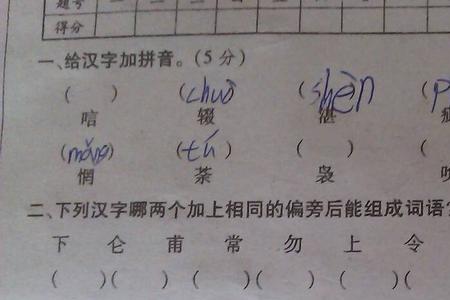 题号 一 二
得分
一、给汉字加拼音。(5分)
( ) (chuò) (shèn) (p
唁 辍 湛
(mǎng) (tú) ( ) (
惘 荼 袅
二、下列汉字哪两个加上相同的偏旁后能组成词语?
下 仑 甫 常 勿 上 令
( )( ) ( )( ) ( )(